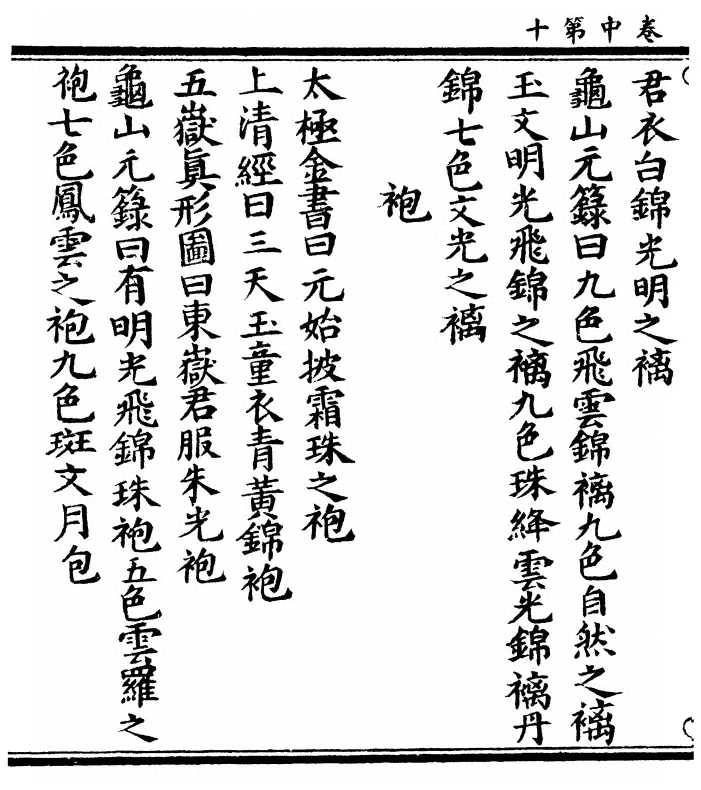 卷中第十
君衣白錦光明之襹
龜山元籙曰九色飛雲錦襹九色自然之襹
玉文明光飛錦之襹九色珠絳雲光錦襹丹
錦七色文光之襹
袍
太極金書曰元始披霜珠之袍
上清經曰三天玉童衣青黃錦袍
五嶽真形圖曰東嶽君服朱光袍
龜山元籙曰有明光飛錦珠袍五色雲羅之
袍七色鳳雲之袍九色斑文月包